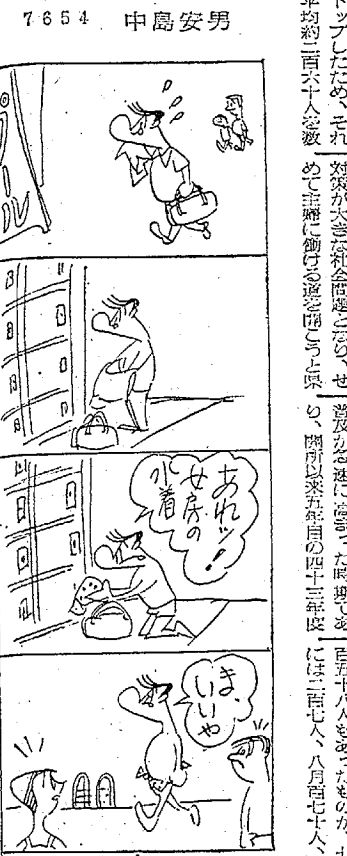 7654 中島安男
プール
あれッ!
女房の
水着
ま、
いいや
トップしたため、それ
平均約二百六十人を数
対策が大きな社会問題となり、せ
めて主婦に働ける道を開こうと県
普及が急速に高まった時期であ
り、開所以来五年目の四十三年度
百五十八人もあったものが、七
には二百七人、八月百七十人、